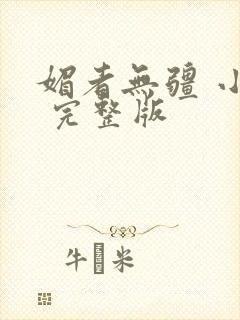 媚者無疆 小
完整版
牛 米